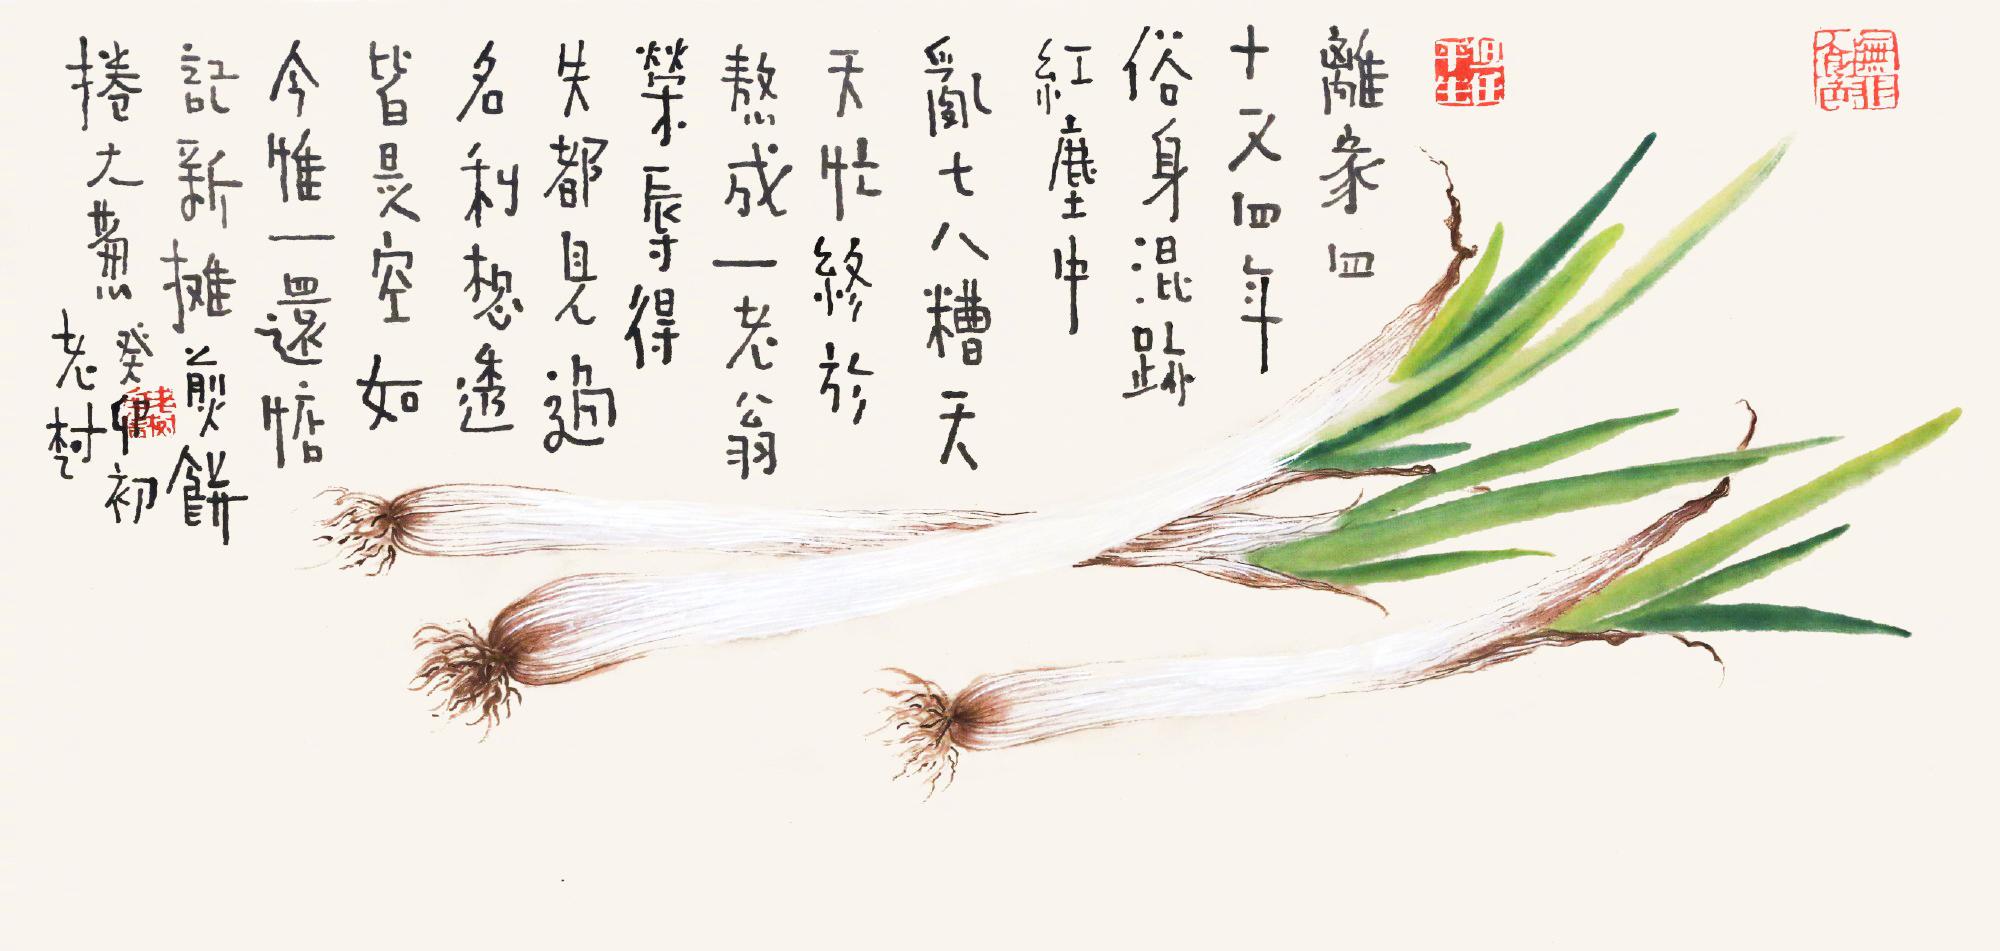 離家四
十又四年
俗身混跡
紅塵中
亂七八糟天
天忙終於
熬成一老翁
榮辱得
失都見過
名利想透
皆是空如
今惟一還惦
記新攤煎餅
捲大蔥
癸卯初
老樹